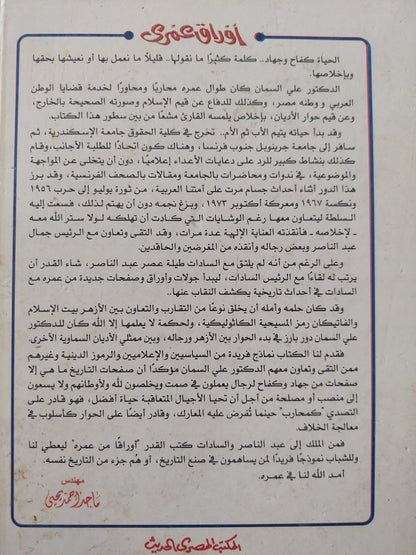 أوراق عمرى
الحياة كفاح وجهاد.. كلمة كثيرًا ما نقولها.. قليلاً ما نعمل بها أو نعيشها بحقها
وبإخلاصها.
الدكتور علي السمان كان طوال عمره محاربًا ومحاورًا لخدمة قضايا الوطن
العربي و وطنه مصر، وكذلك للدفاع عن قيم الإسلام وصورته الصحيحة بالخارج،
وعن قيم حوار الأديان، بإخلاص يلمسه القارئ مشعًا من بين سطور هذا الكتاب.
وقد بدأ حياته يتيم الأب ثم الأم.. تخرج في كلية الحقوق جامعة الإسكندرية، ثم
سافر إلى جامعة جرينوبل جنوب فرنسا، وهناك كون اتحادًا للطلبة الأجانب، وقام
كذلك بنشاط كبير للرد على دعايات الأعداء إعلاميًا، دون أن يتخلى عن المواجهة
والموضوعية، في ندوات ومحاضرات بالجامعة ومقالات بالصحف الفرنسية، وقد برز
هذا الدور أثناء أحداث جسام مرت على أمتنا العربية، من ثورة يوليو إلى حرب ١٩٥٦
ونكسة ١٩٦٧ ومعركة أكتوبر ١٩٧٣، وبزغ نجمه دون أن يهتم لذلك، فسعت إليه
السلطة ليتعاون معها رغم الوشايات التي كادت أن تهلكه لـولا ستر الله معه
- لإخلاصه - فأنقذته العناية الإلهية عدة مرات، وقد التقى وتعاون مع الرئيس جمال
عبد الناصر وبعض رجاله وأنقذه من المغرضين والحاقدين.
وعلى الرغم من أنه لم يلتق مع السادات طيلة عصر عبد الناصر، شاء القدر أن
يرتب له لقاءً مع الرئيس السادات، ليبدأ جولات وأوراق وصفحات جديدة من عمره مع
السادات في أحداث تاريخية يكشف النقاب عنها..
وقد كان حلمه وأمله أن يخلق نوعًا من التقارب والتعاون بين الأزهر بيت الإسلام
والفاتيكان رمز المسيحية الكاثوليكية، ولحكمة لا يعلمها إلا الله كان للدكتور
علي السمان دور بارز في بدء الحوار بين الأزهر ورجاله، وبين ممثلي الأديان السماوية الأخرى.
فقدم لنا الكتاب نماذج فريدة من السياسيين والإعلاميين والرموز الدينية وغيرهم
ممن التقى وتعاون معهم الدكتور علي السمان مؤكدًا أن صفحات التاريخ ما هي إلا
صفحات من جهاد وكفاح لرجال يعملون في صمت ويخلصون لله ولأوطانهم ولا يسعون
إلى منصب أو مصلحة من أجل أن تحيا الأجيال المتعاقبة حياة أفضل، فهو قادر على
التصدي "كمحارب" حينما تُفرض عليه المعارك، وقادر أيضًا على الحوار كأسلوب في
معالجة الخلاف.
فمن الملك إلى عبد الناصر والسادات كتب القدر "أوراقًا من عمره" ليعطي لنا
وللشباب نموذجًا فريدًا لمن يساهمون في صنع التاريخ، أو هُم جزء من التاريخ نفسه.
أمد الله لنا في عمره.
مهندس
ماجد أحمد يحيى
المكتب المصرى الحديث